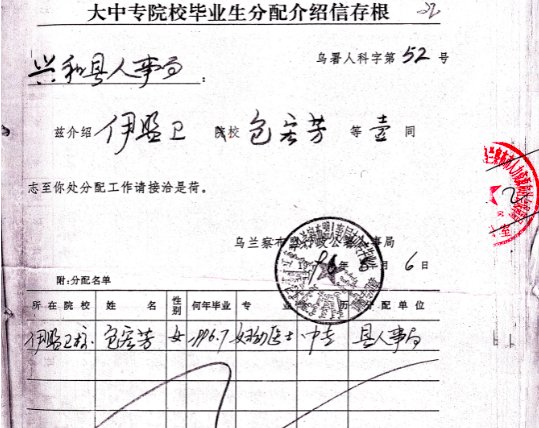 大中专院校毕业生分配介绍信存根
乌署人科字第52号
兴和县人事局：
兹介绍伊盟卫院校包宏芳等壹同
志至你处分配工作请接洽是荷。
乌兰察布盟行政公署人事局
6日
附:分配名单
所在院校 姓名 性别 何年毕业 专业 学历 分配单位
伊盟卫校 包宏芳 女 1996.7 妇幼医士 中专 县人事局